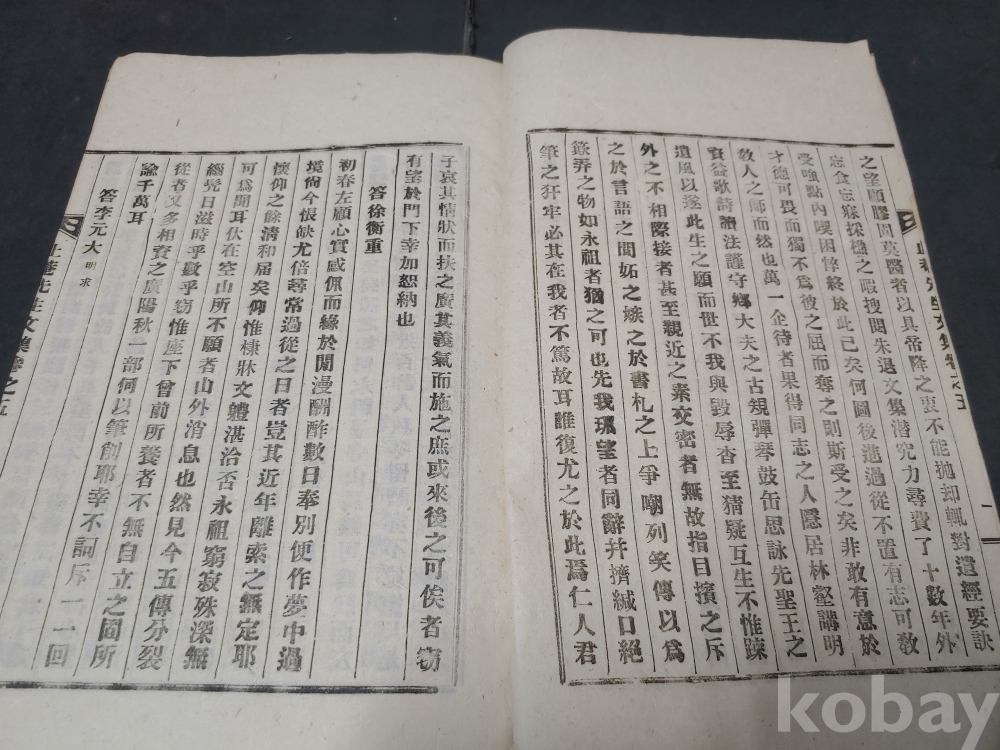 之望願膠固莫醫者以具帝降之衷不能拋却輒對遺經要訣
忘食忘寐採機之暇搜閱朱退文集潛究力尋費了十數年外
受嗤點內嘆困悴終於此已矣何圖後進過從不置有志可敎
才德可畏而獨不爲彼之屈而奪之則斯受之矣非敢有意於
敎人之師而然也萬一企待者果得同志之人隱居林壑講明
資益歌詩讀法謹守鄉大夫之古規彈琴鼓缶思詠先聖王之
遺風以遂此生之願而世不我與毁辱沓至猜疑互生不惟踈
外之不相際接者甚至親近之素交密者無故指目擯之斥
之於言語之間妬之嫉之於書札之上爭嘲列笑傳以爲
鉃弄之物如永祖者猶之可也先我 望者同辭幷擠緘口絕
筆之狂牢必其在我者不篤故耳誰復尤之於此爲仁人君
子哀其情狀而扶之廣其義氣而施之庶或來後之可俟者窃
有望於門下幸加恕納也
答徐衡重
初春左顧心實感佩而緣於閒漫酬酢數日奉別便作夢中過
境尙今悵缺尤倍尋常過從之日者豈其近年離索之無定耶
懷仰之餘淸和屆矣仰惟棣牀文軆湛洽否永祖窮寂殊深無
可爲聞耳伏在空山所不願者山外消息也然見今五傳分裂
緇髡日滋時乎數乎窃惟座下曾前所養者不無自立之固所
從者又多相資之廣陽秋一部何以筆創耶幸不詞斥一一回
諭千萬耳
答李元大 明求
止菴先生文集卷之五
kobay